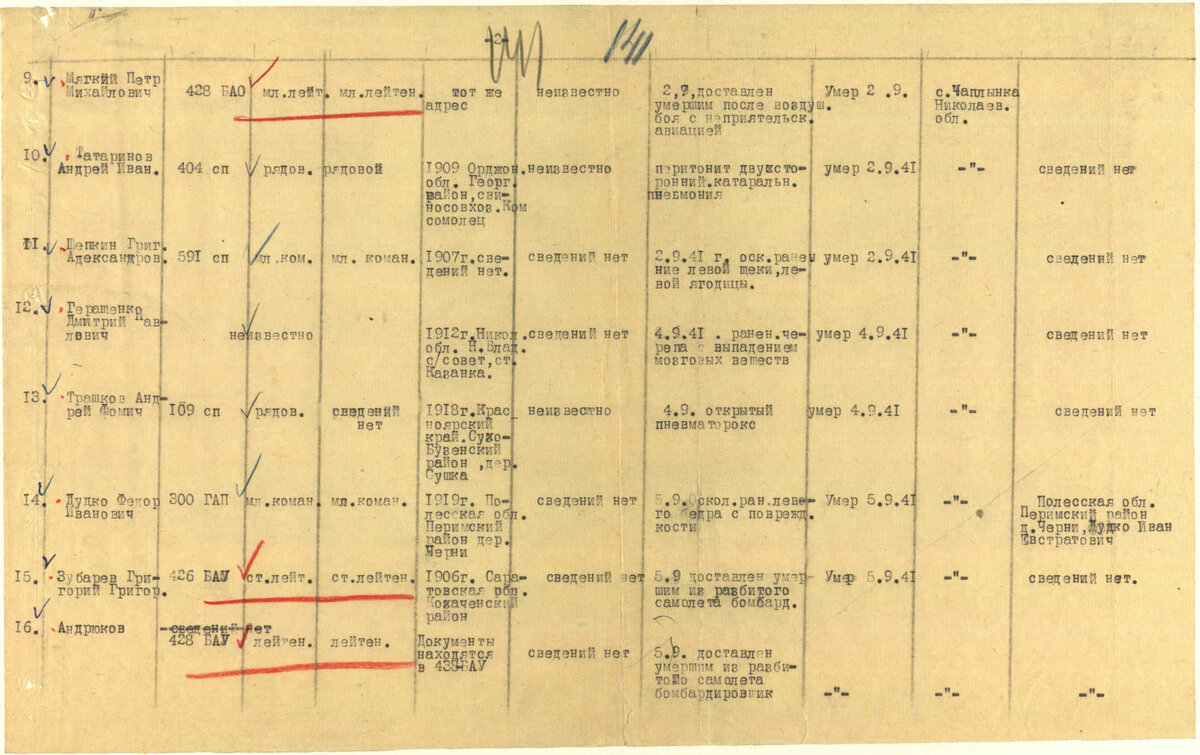 -2-
141
9. Мягкий Петр
Михайлович
428 БАО
мл.лейт.
мл.лейтен.
тот же
адрес
неизвестно
2,9,доставлен
умершим после воздуш.
боя с неприятельск.
авиацией
Умер 2 .9.
с.Чаплынка
Николаев.
обл.
10. Татаринов
Андрей Иван.
404 сп
рядов.
рядовой
1909 Орджон.
обл. Георг.
район,сви-
носовхоз.Ком
сомолец
неизвестно
перитонит двухсто-
ронний.катаральн.
пневмония
умер 2.9.41
-"-
сведений нет
11. Щепкин Григ.
Александров.
591 сп
мл.ком.
мл. коман.
1907г.све-
дений нет.
сведений нет
2.9.41 г. оск.ранен
ние левой щеки,ле-
вой ягодицы.
умер 2.9.41
-"-
сведений нет
12. Геращенко
Дмитрий Пав-
лович
неизвестно
1912г.Никол.
обл. Н.Влад.
с/совет,ст.
Казанка.
сведений нет
4.9.41 . ранен.че-
репа с выпадением
мозговых веществ
умер 4.9.41
-"-
сведений нет
13. Трашков Анд-
рей Фомич
109 сп
рядов.
сведений
нет
1918г.Крас
ноярский
край.Сухо-
Бузенский
район ,дер.
Сушка
неизвестно
4.9. открытый
пневматорокс
умер 4.9.41
-"-
сведений нет
14. Дудко Федор
Иванович
300 ГАП
мл.коман.
мл.коман.
1919г. По-
лесская обл.
Перимский
район дер.
Черни
сведений нет
5.9.Оскол.ран.лево-
го бедра с поврежд.
кости
Умер 5.9.41
-"-
Полесская обл.
Перимский район
д.Черни,Дудко Иван
Евстратович
15. Зубарев Гри-
горий Григор.
426 БАУ
ст.лейт.
ст.лейтен.
1906г. Сара-
товская обл.
Кокаченский
район
сведений нет
5.9 доставлен умер-
шим из разбитого
самолета бомбард.
Умер 5.9.41
-"-
сведений нет.
16. Андрюков
сведений нет
428 БАУ
лейтен.
лейтен.
Документы
находятся
в 438БАУ
сведений нет
5.9. доставлен
умершим из разби-
того самолета
бомбардировщик
-"-
-"-
-"-